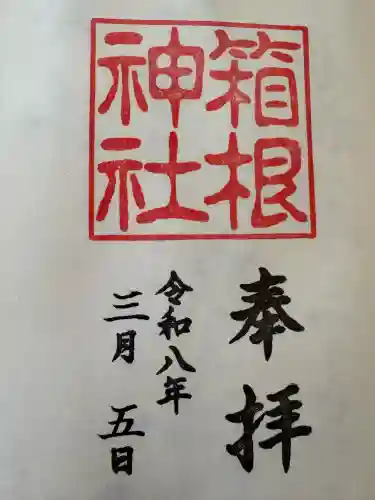 箱根
神社
奉拝
令和八年
三月五日